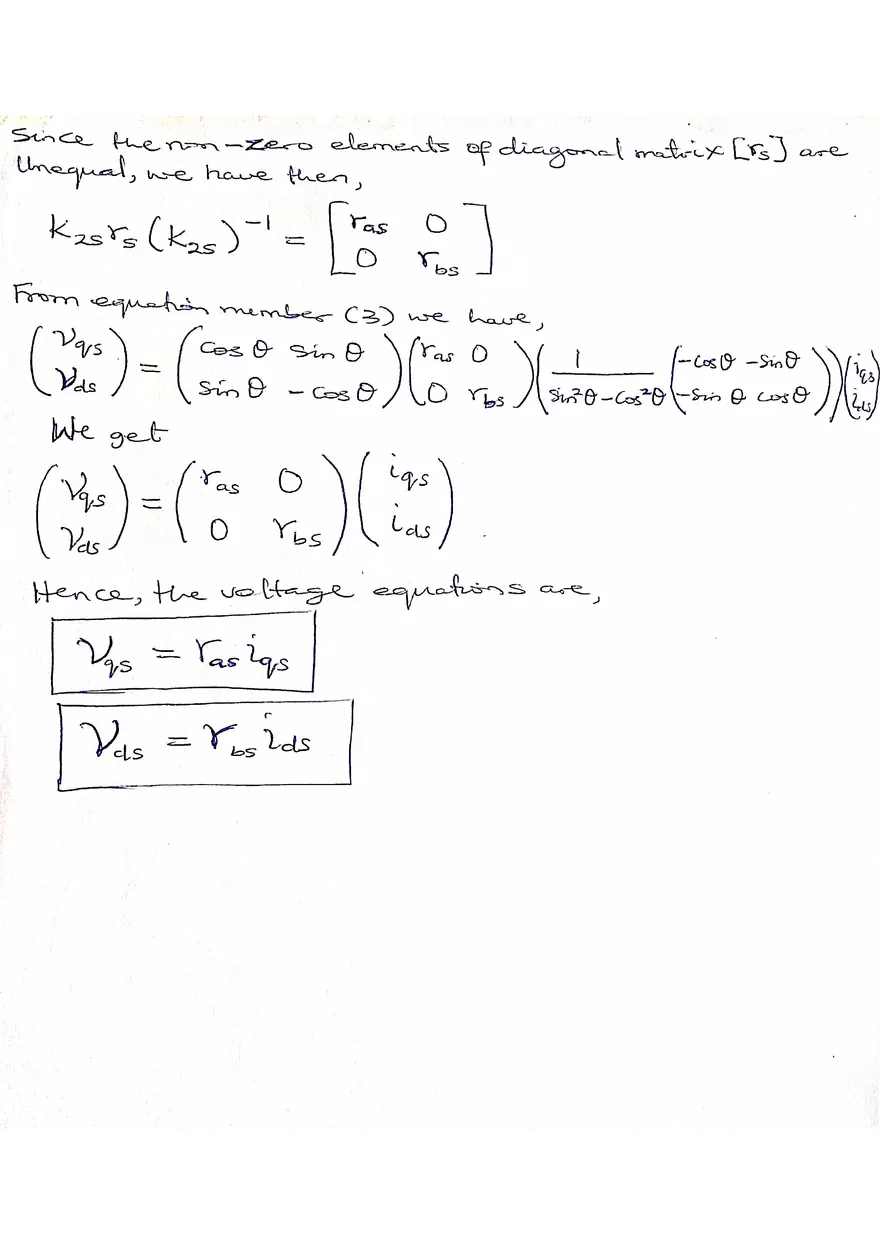 Since the non-zero elements of diagonal matrix [rs] are
Unequal, we have then,
K2s rs (K2s)^-1 = [ras 0; 0 rbs]
From equation member (3) we have,
(Vqs; Vds) = (cos θ sin θ; sin θ -cos θ)(ras 0; 0 rbs)(1/(sin²θ-cos²θ) (-cos θ -sin θ; -sin θ cos θ))(iqs; ids)
We get
(Vqs; Vds) = (ras 0; 0 rbs)(iqs; ids).
Hence, the voltage equations are,
Vqs = ras iqs
Vds = rbs ids